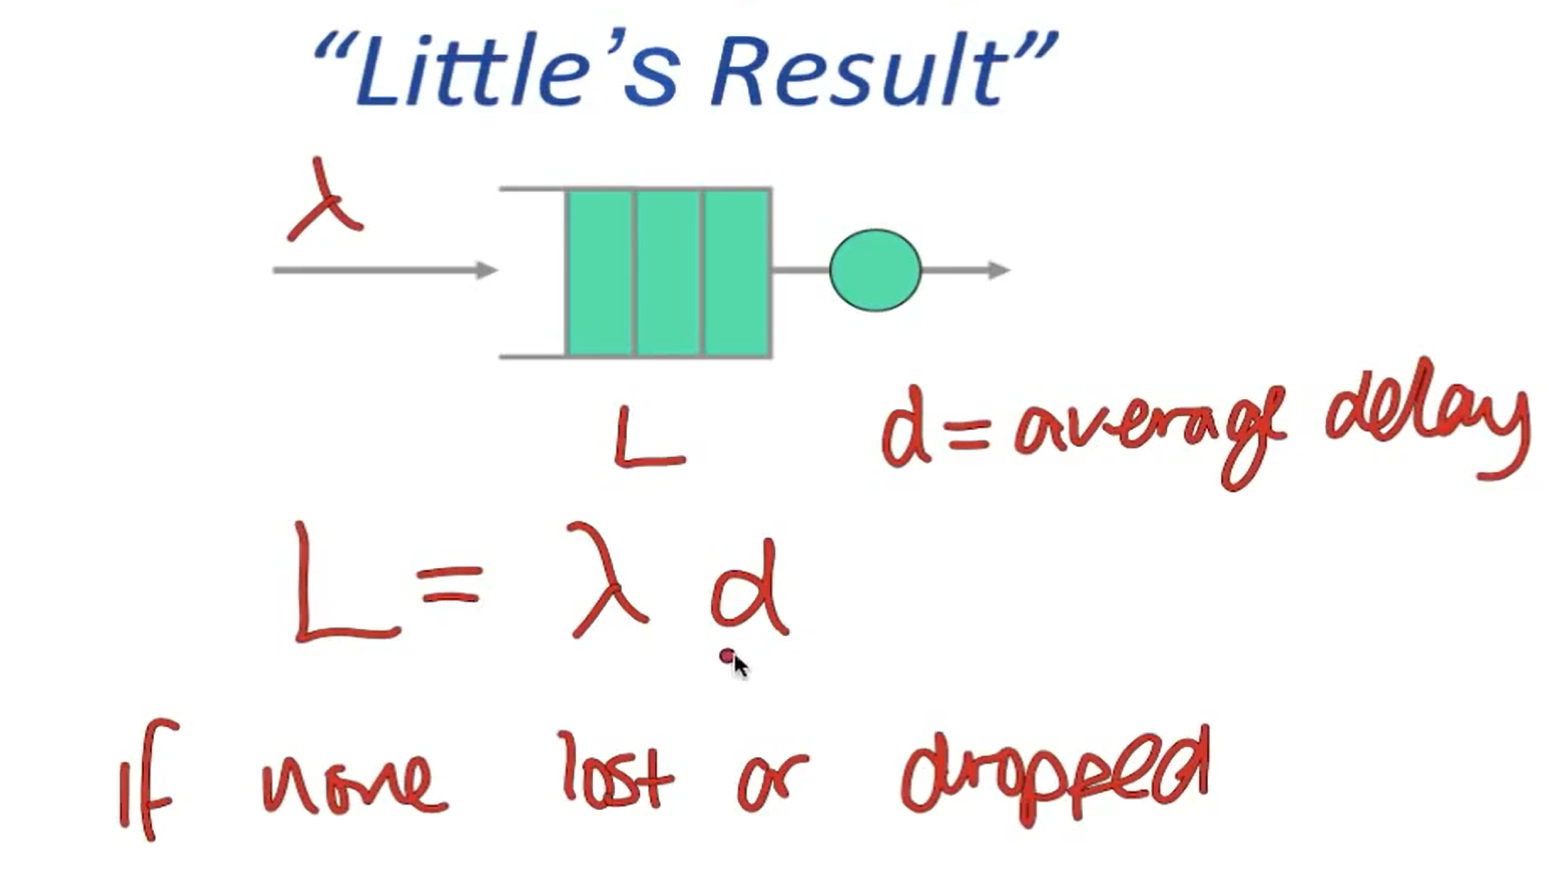 “Little’s Result”
λ
L
d = average delay
L = λ d
If none lost or dropped